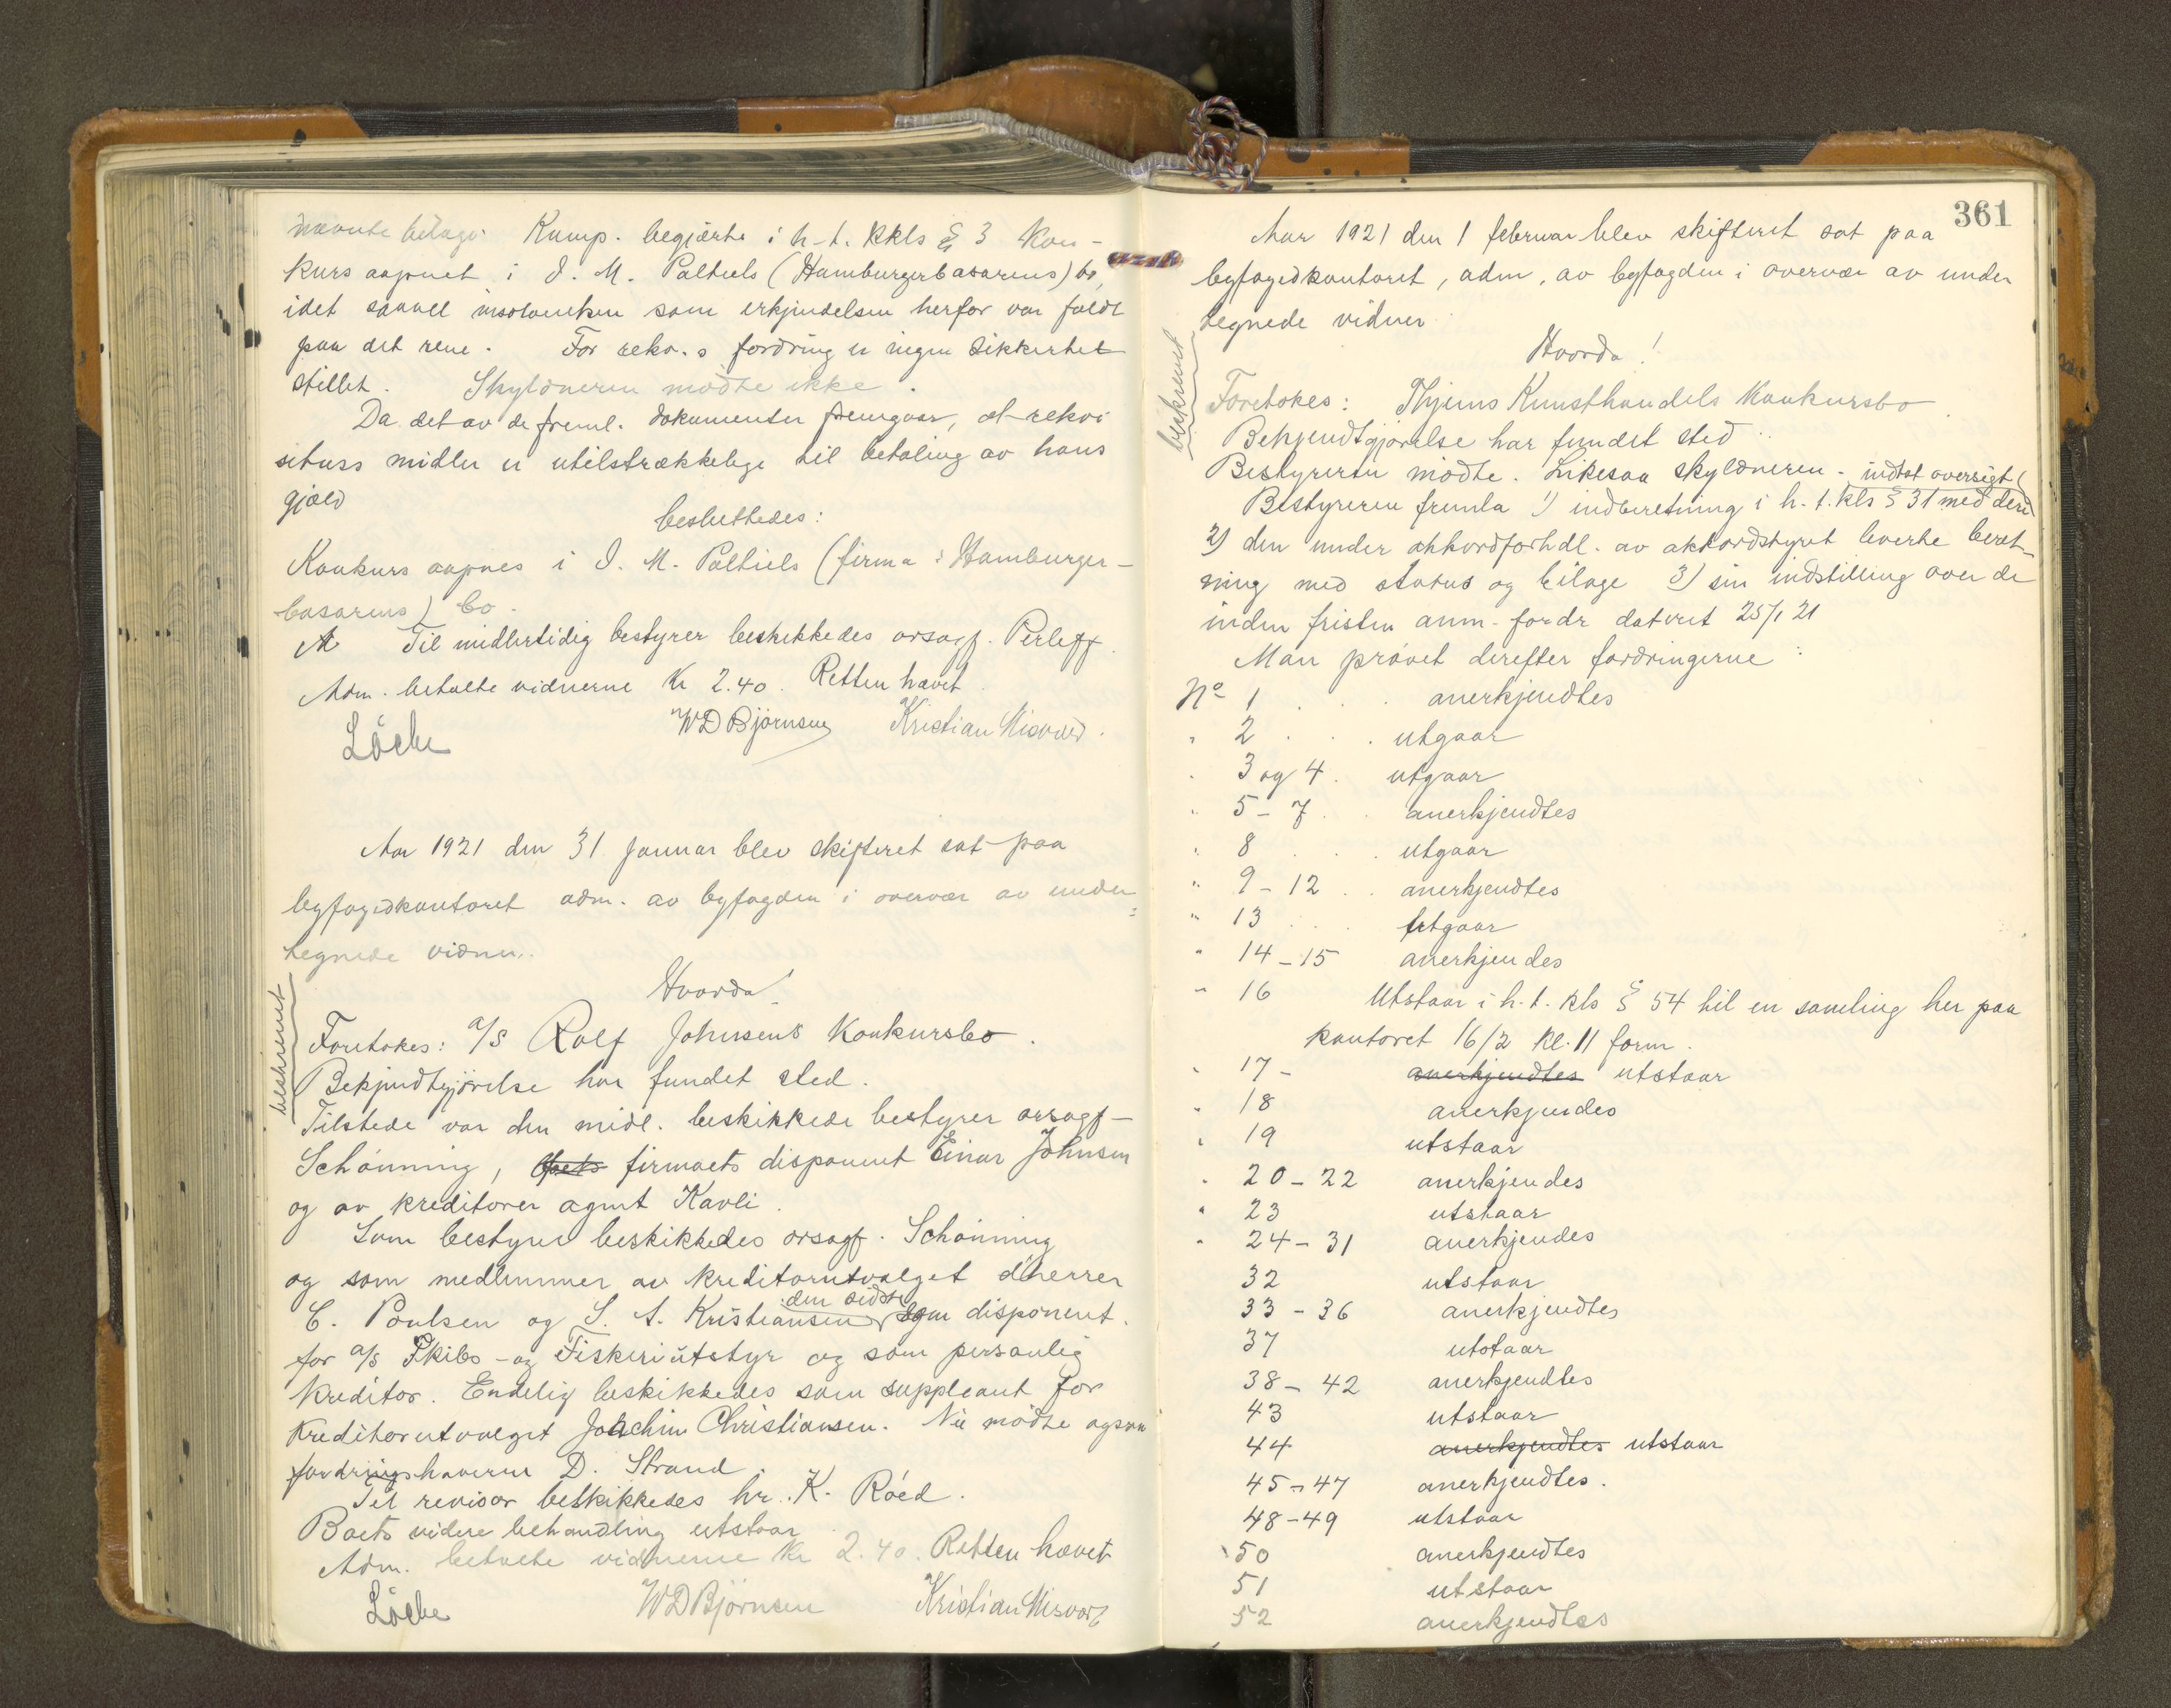 nævnte bilage. Kump. begjærte i h-t. kkls § 3 kon-
kurs aapnet i I. M. Paltiels (Hamburgerbasarens) bo,
idet saavel insolvensen som erkjendelsen herfor var faldt
paa det rene. For rekv.s fordring er ingen sikkerhet
stillet. Skyldneren mødte ikke.
Da det av de freml. dokumenter fremgaar, at rekvi
situss midler er utilstrækkelige til betaling av hans
gjæld
besluttedes:
Konkurs aapnes i I. M. Paltiels (firma: Hamburger-
basarens) bo.
Til midlertidig bestyrer beskikkedes orsagf.
Adm. betalte vidnerne Kr 2.40. Retten hævet
WD Bjørnsen Kristian
Aar 1921 den 31 januar blev skifteret sat paa
byfogedkontoret adm. av byfogden i overvær av under=
tegnede vidner.
Hvorda!
beskrevet
Foretokes: a/s Rolf Johnsens konkursbo.
Bekjendtgjørelse har fundet sted.
Tilstede var den midl. beskikkede bestyrer orsagf-
Schønning, firmaets disponent Einar Johnsen
og av kreditorer agent Kavli.
Som bestyrer beskikkedes orsagf. Schønning
og som medlemmer av kreditorutvalget d'herrer
C. Poulsen og S. A. Kristiansen den sidste som disponent.
for a/s Skibs- og Fiskeriutstyr og som personlig
kreditor. Endelig beskikkedes som suppleant for
kreditorutvalget Joachim Christiansen. Nu mødte ogsaa
fordringshaveren D. Strand.
Til revisor beskikkedes hr. K. Röed.
Boets videre behandling utstaar
Adm. betalte vidnerne kr 2.40. Retten hævet
WD Bjørnsen Kristian
361
Aar 1921 den 1 februar blev skifteret sat paa
byfogedkontoret, adm. av byfogden i overvær av under
tegnede vidner
Hvorda!
beskrevet
Foretokes: Thjems Kunsthandels konkursbo.
Bekjendtgjørelse har fundet sted
Bestyreren mødte. Likesaa skyldneren - indtat oversigt
Bestyreren fremla 1) indberetning i h. t. kls § 31 med deri
2) den under akkordforhdl. av akkordstyret leverte beret-
ning med status og bilage 3) sin indstilling over de
inden fristen anm. fordr dateret 25/1 21
Man prøvet derefter fordringerne:
No 1 . . . anerkjendtes
" 2 . . . utgaar
" 3 og 4. utgaar
" 5-7 . . anerkjendtes
" 8 . . . utgaar
" 9-12 . . anerkjendtes
" 13 . . . utgaar
" 14-15 anerkjendes
" 16 Utstaar i h. t. kls § 54 til en samling her paa
kontoret 16/2 kl. 11 form.
" 17 - anerkjendtes utstaar
" 18 anerkjendes
" 19 utstaar
" 20-22 anerkjendes
" 23 utstaar
" 24-31 anerkjendes
32 utstaar
33-36 anerkjendtes
37 utstaar
38-42 anerkjendtes
43 utstaar
44 anerkjendtes utstaar
45-47 anerkjendtes.
48-49 utstaar
50 anerkjendtes
51 utstaar
52 anerkjendtes